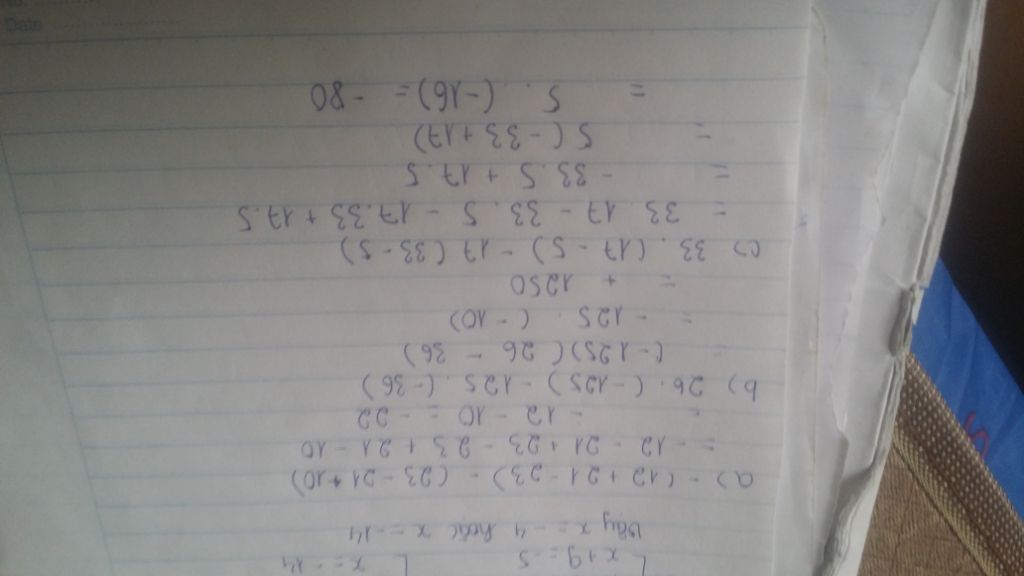 x + 9 = -5 x = -14
Vậy x = -4 hoặc x = -14
a) - (12 + 21 - 23) - (23 - 21 + 10)
= - 12 - 21 + 23 - 23 + 21 - 10
= - 12 - 10 = - 22
b) 26 . (-125) - 125 . (-36)
= (-125) (26 - 36)
= - 125 . (-10)
= + 1250
c) 33 . (17 - 5) - 17 (33 - 5)
= 33 . 17 - 33 . 5 - 17.33 + 17.5
= - 33 . 5 + 17 . 5
= 5 (-33 + 17)
= 5 . (-16) = - 80
No.
Date